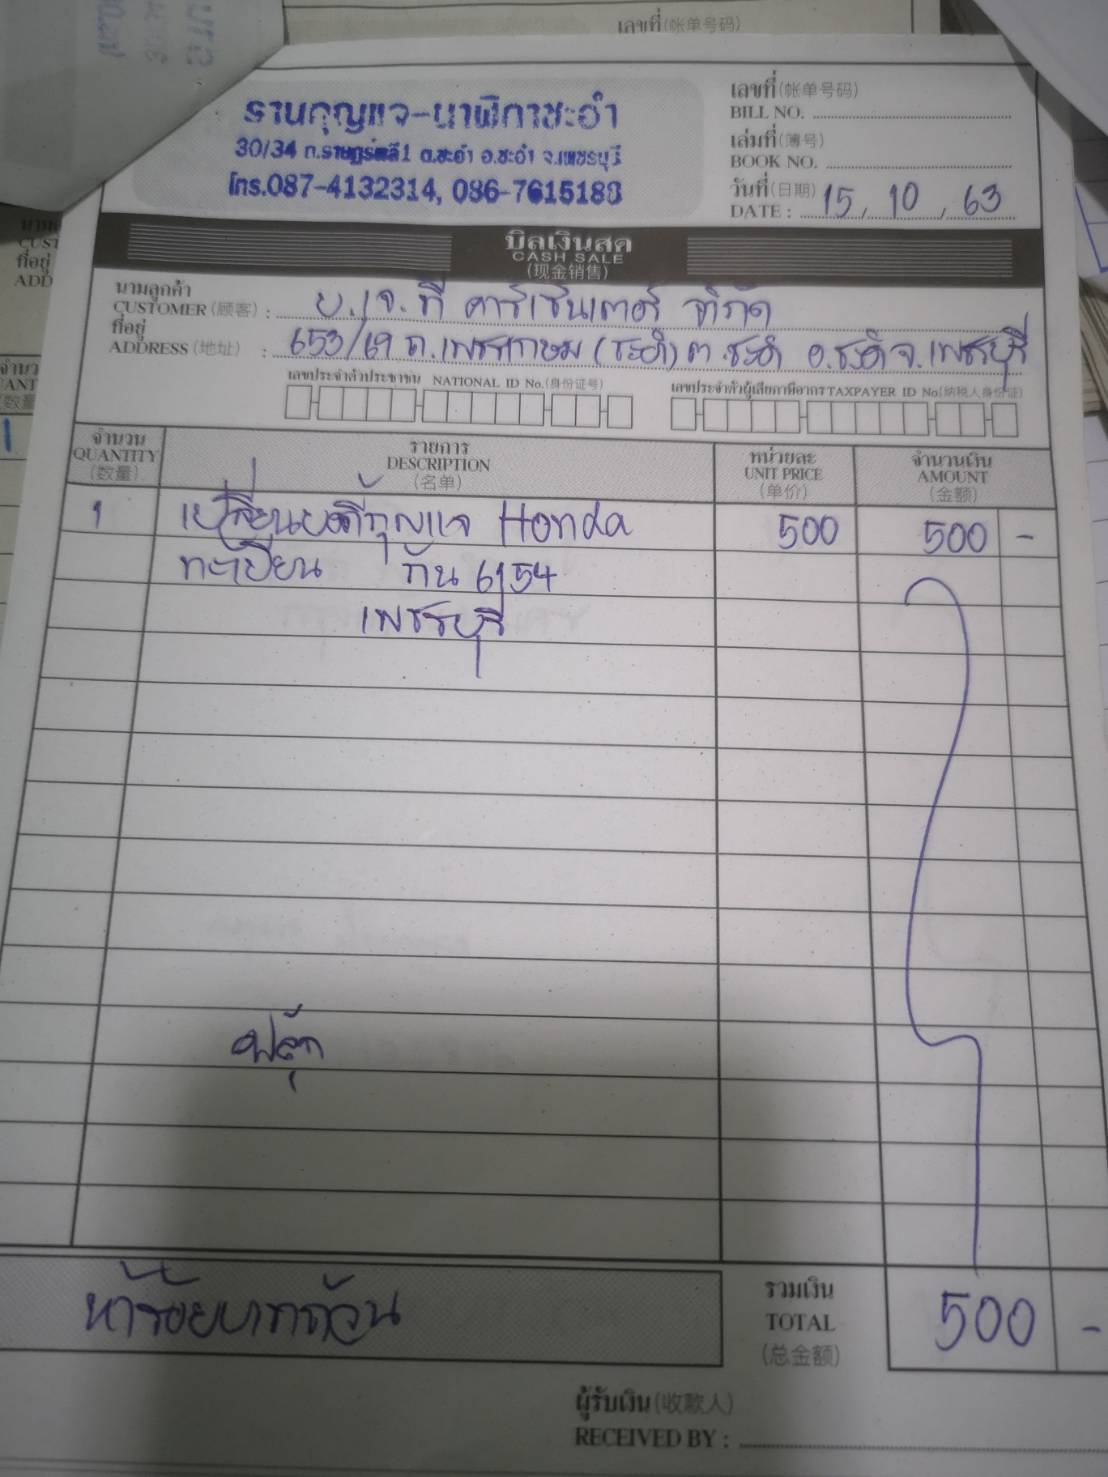 เลขที่(帐单号码)
รานกุญแจ-นาฬิกาชะอำ
30/34 ถ.ราษฎร์พลี1 ต.ชะอำ อ.ชะอำ จ.เพชรบุรี
โทร.087-4132314, 086-7615188
เลขที่(帐单号码)
BILL NO.
เล่มที่(簿号)
BOOK NO.
วันที่(日期) 15, 10, 63
DATE :
บิลเงินสด
CASH SALE
(现金销售)
นามลูกค้า
CUSTOMER (顾客) : บ. เจ. ที คาร์เซ็นเตอร์ จำกัด
ที่อยู่
ADDRESS (地址) : 653/69 ถ.เพชรเกษม (ชะอำ) ต.ชะอำ อ.ชะอำ จ.เพชรบุรี
เลขประจำตัวประชาชน NATIONAL ID No.(身份证号) เลขประจำตัวผู้เสียภาษีอากร TAXPAYER ID No(纳税人身份证)
จำนวน รายการ หน่วยละ จำนวนเงิน
QUANTITY DESCRIPTION UNIT PRICE AMOUNT
(数量) (名单) (单价) (金额)
1 เปลี่ยนบอดี้กุญแจ Honda 500 500 -
ทะเบียน กัน 6154
เพชรบุรี
ฟลุ้ก
ห้าร้อยบาทถ้วน
รวมเงิน
TOTAL 500 -
(总金额)
ผู้รับเงิน(收款人)
RECEIVED BY :